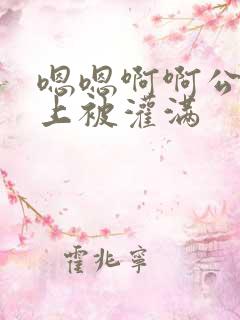 嗯嗯啊啊公
上被灌满
霍兆寧